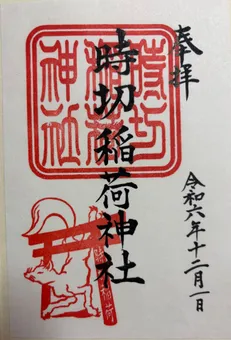 奉拝
時切稲荷神社
令和六年十二月一日
時切
稲荷
神社
稲荷